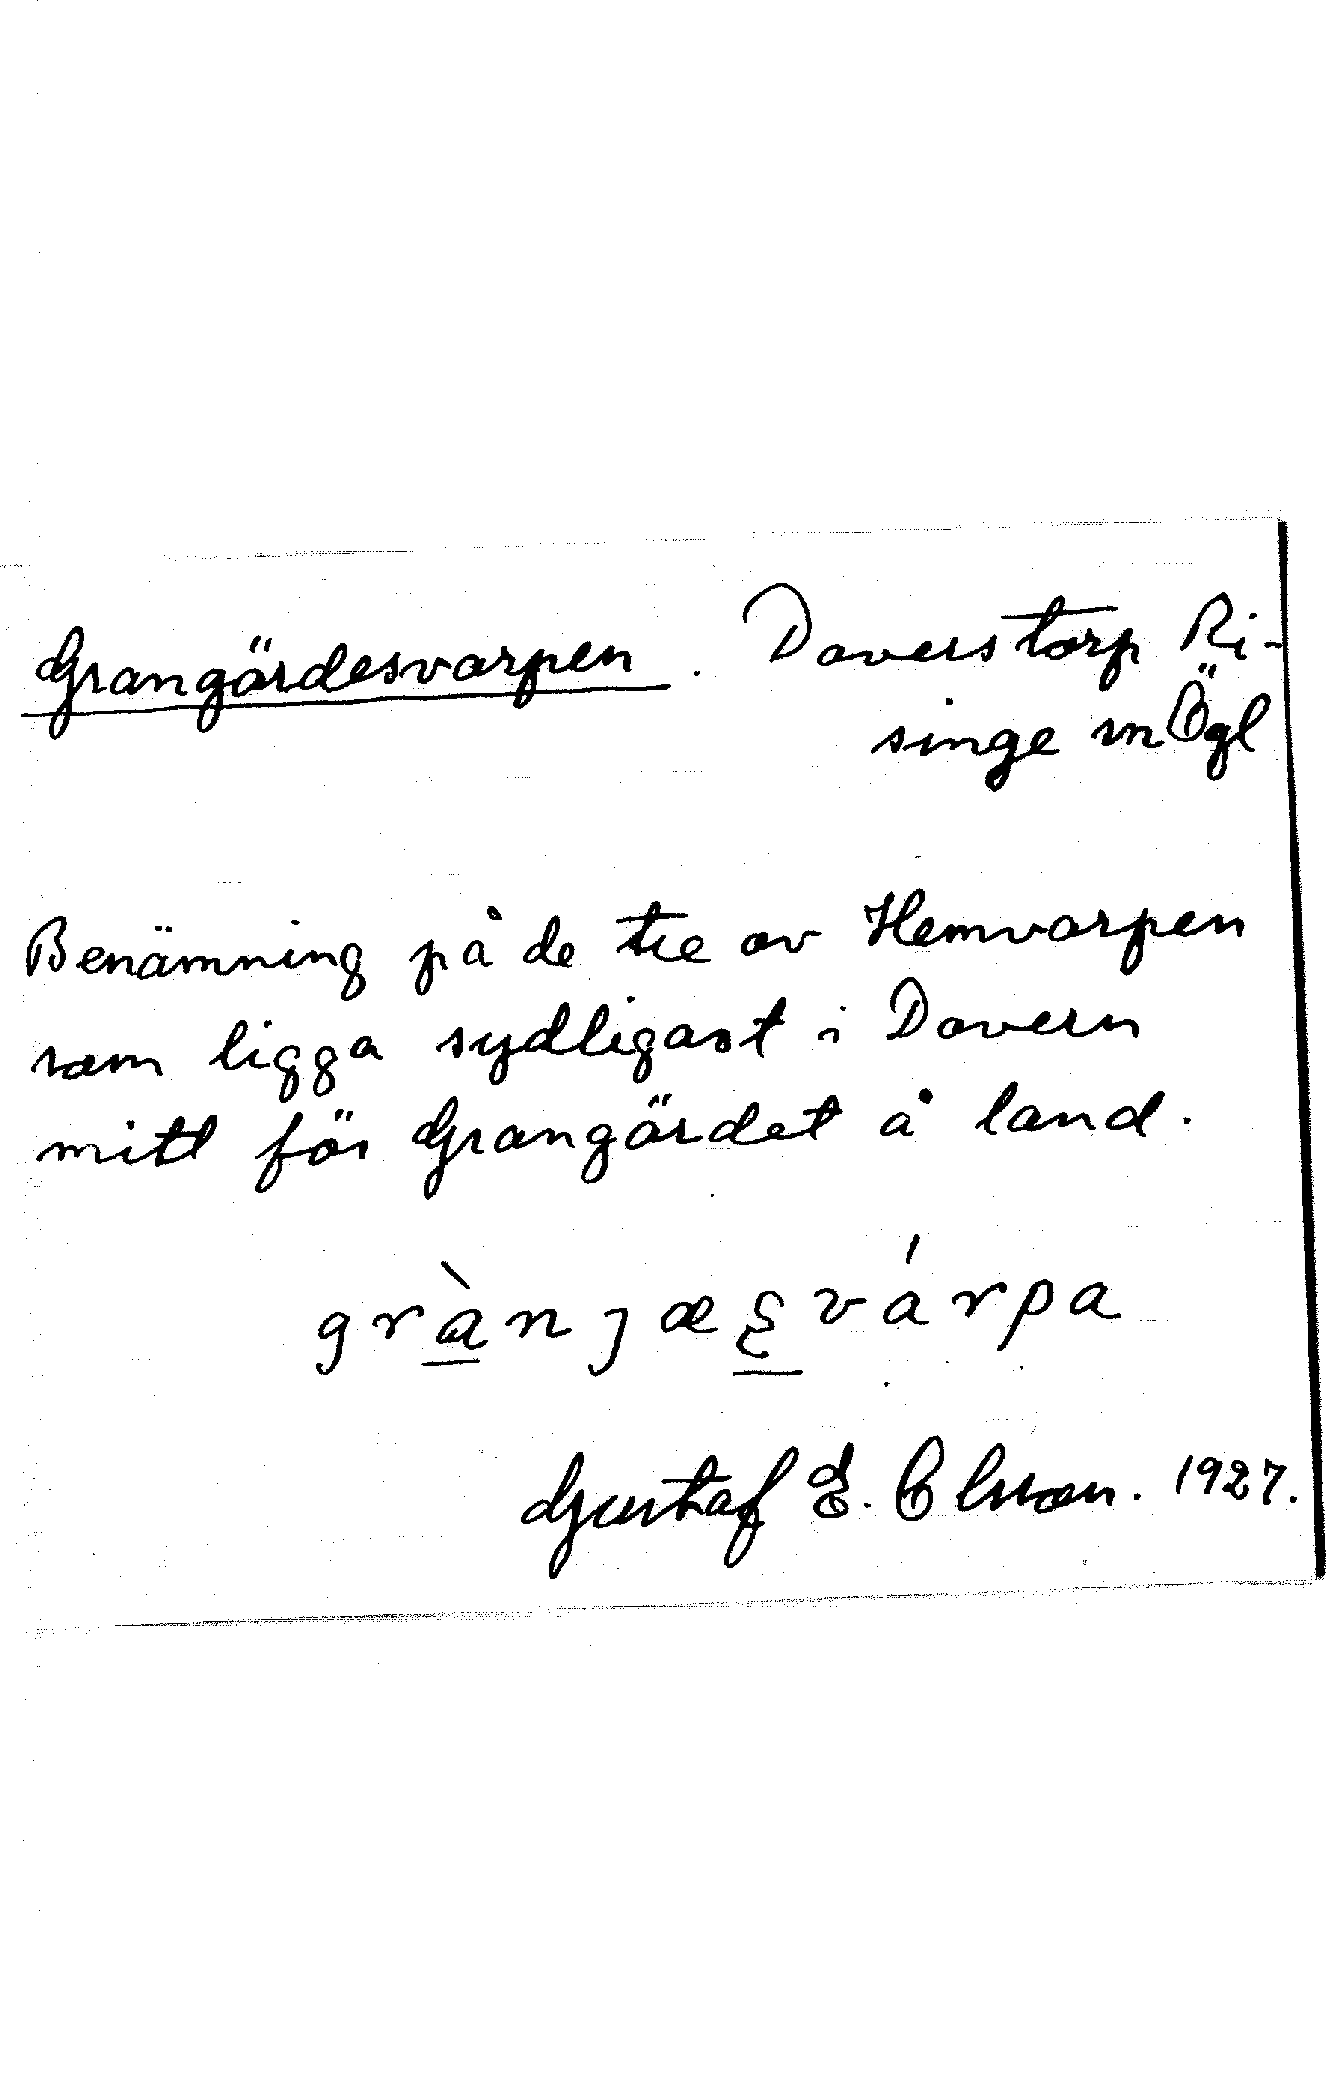 Grangärdesvarpen. Daverstorp Ri-
singe sn Ögl
Benämning på de tre av Hemvarpen
som ligga sydligast i Davern
mitt för Grangärdet å land.
Gustaf E. Olsson. 1927.